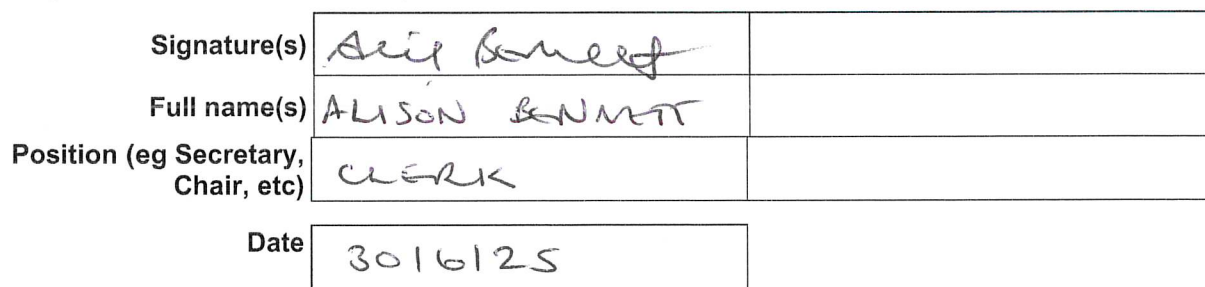 Signature(s)
Full name(s) ALISON BENNETT
Position (eg Secretary, Chair, etc) CLERK
Date 30/6/25